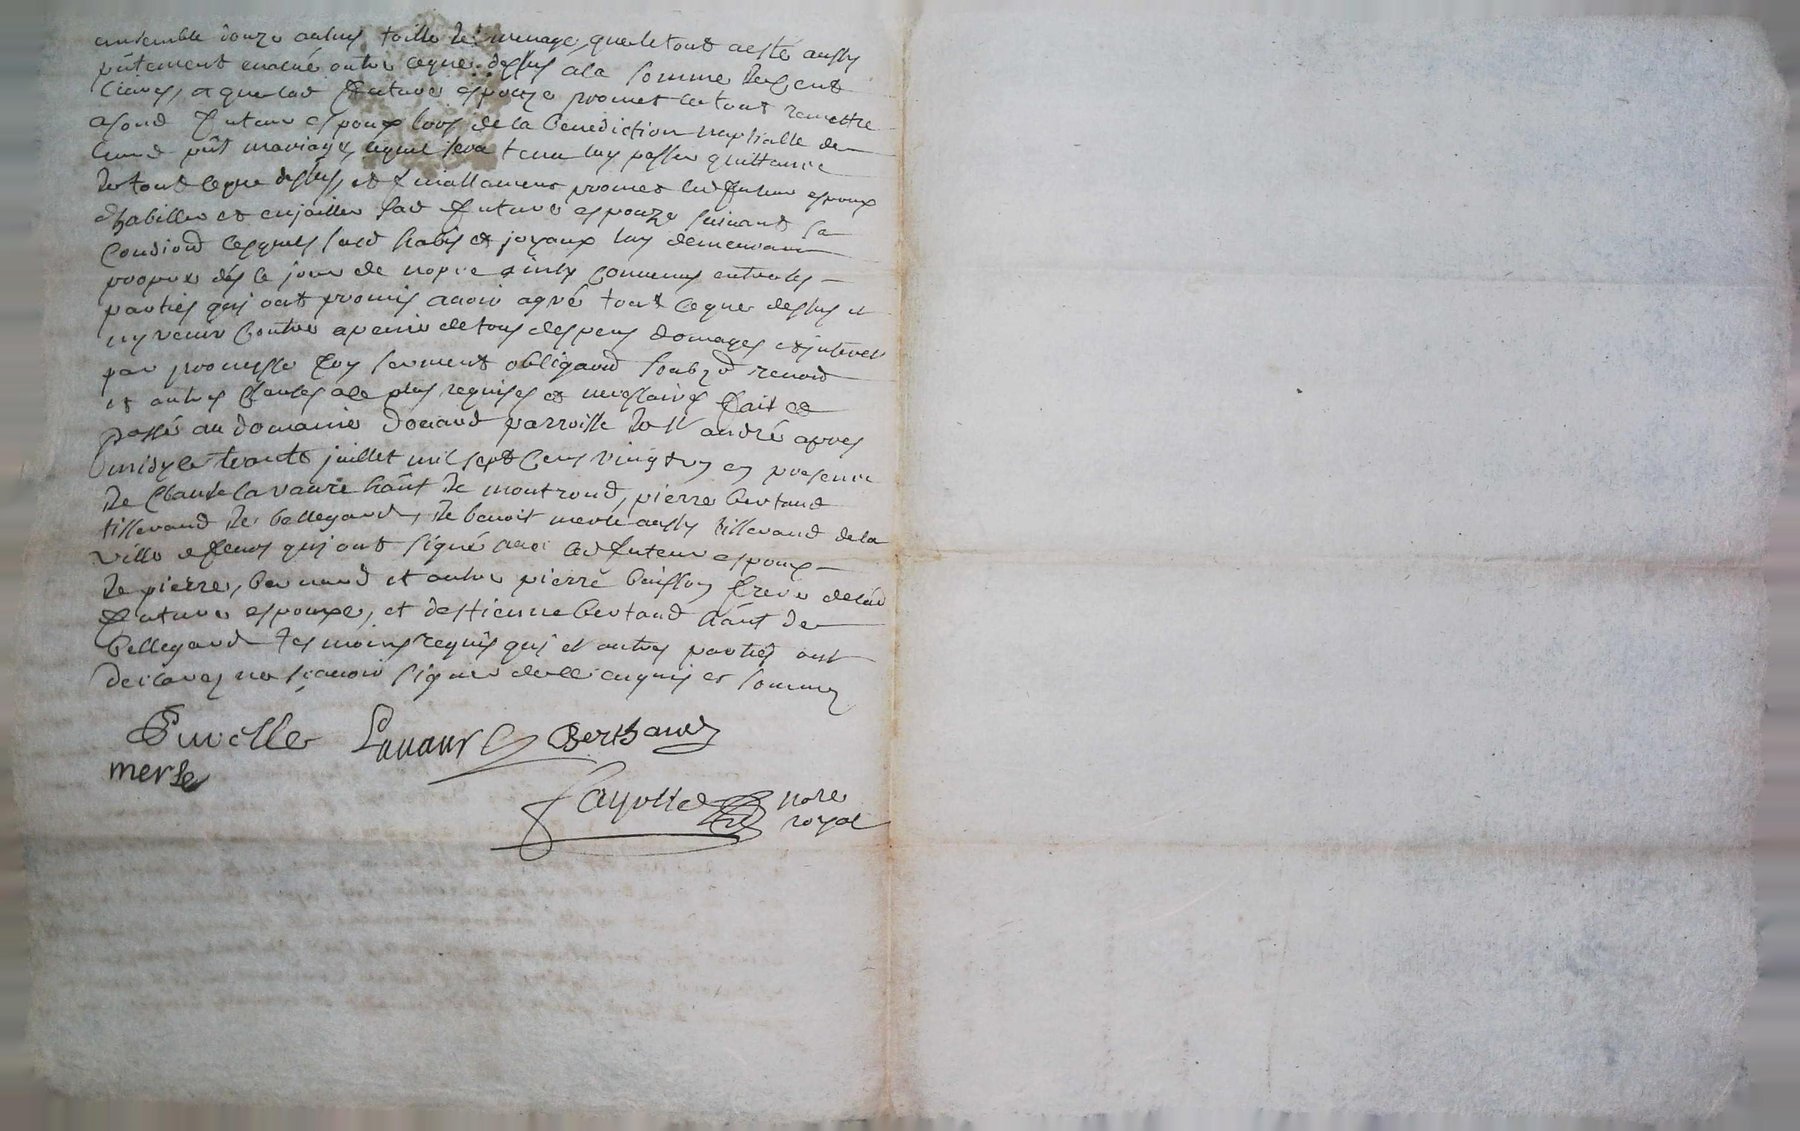 ensemble douze aulnes toille de menage, que le tout a esté aussy
pntement evalué outre ceque dessus ala somme de cent
livres, et que lad future espouze promet le tout remettre
asond futeur espoux lors de la benediction nuptialle de
leurd pnt mariage, lequel sera tenu luy passer quittance
de tout ceque dessus, et finallement promet led futeur espoux
dhabiller et enjoailler sad future espouze suivant sa
condiond lesquels susd habis et joyaux luy demeureront
propre dés le jour de nopce ainsy convenu entre les
parties qui ont promis avoir agreé tout ceque dessus et
ny venir contre apeine de tous despens domages et interets
par promesse foy serment obligaond soubzd renond
et autres clauses ale plus requises et necessaires fait et
passé au domaine parroisse de St andré apres
midy le trante juillet mil sept cens vingt un en presence
de Claude lavaure hant de montrond, pierre bertaud
tisserand de bellegarde, de benoit merle aussy tisserand dela
ville de feurs qui ont signé avec led futeur espoux
de pierre, bernard et autre pierre buisson frere delad
future espouze, et destienne bertaud hant de
bellegarde tesmoins requis qui et autres parties ont
declarez ne scavoir signer de ce enquis et sommez
Lavaure Berthaud
merle
fayolle nore
royal